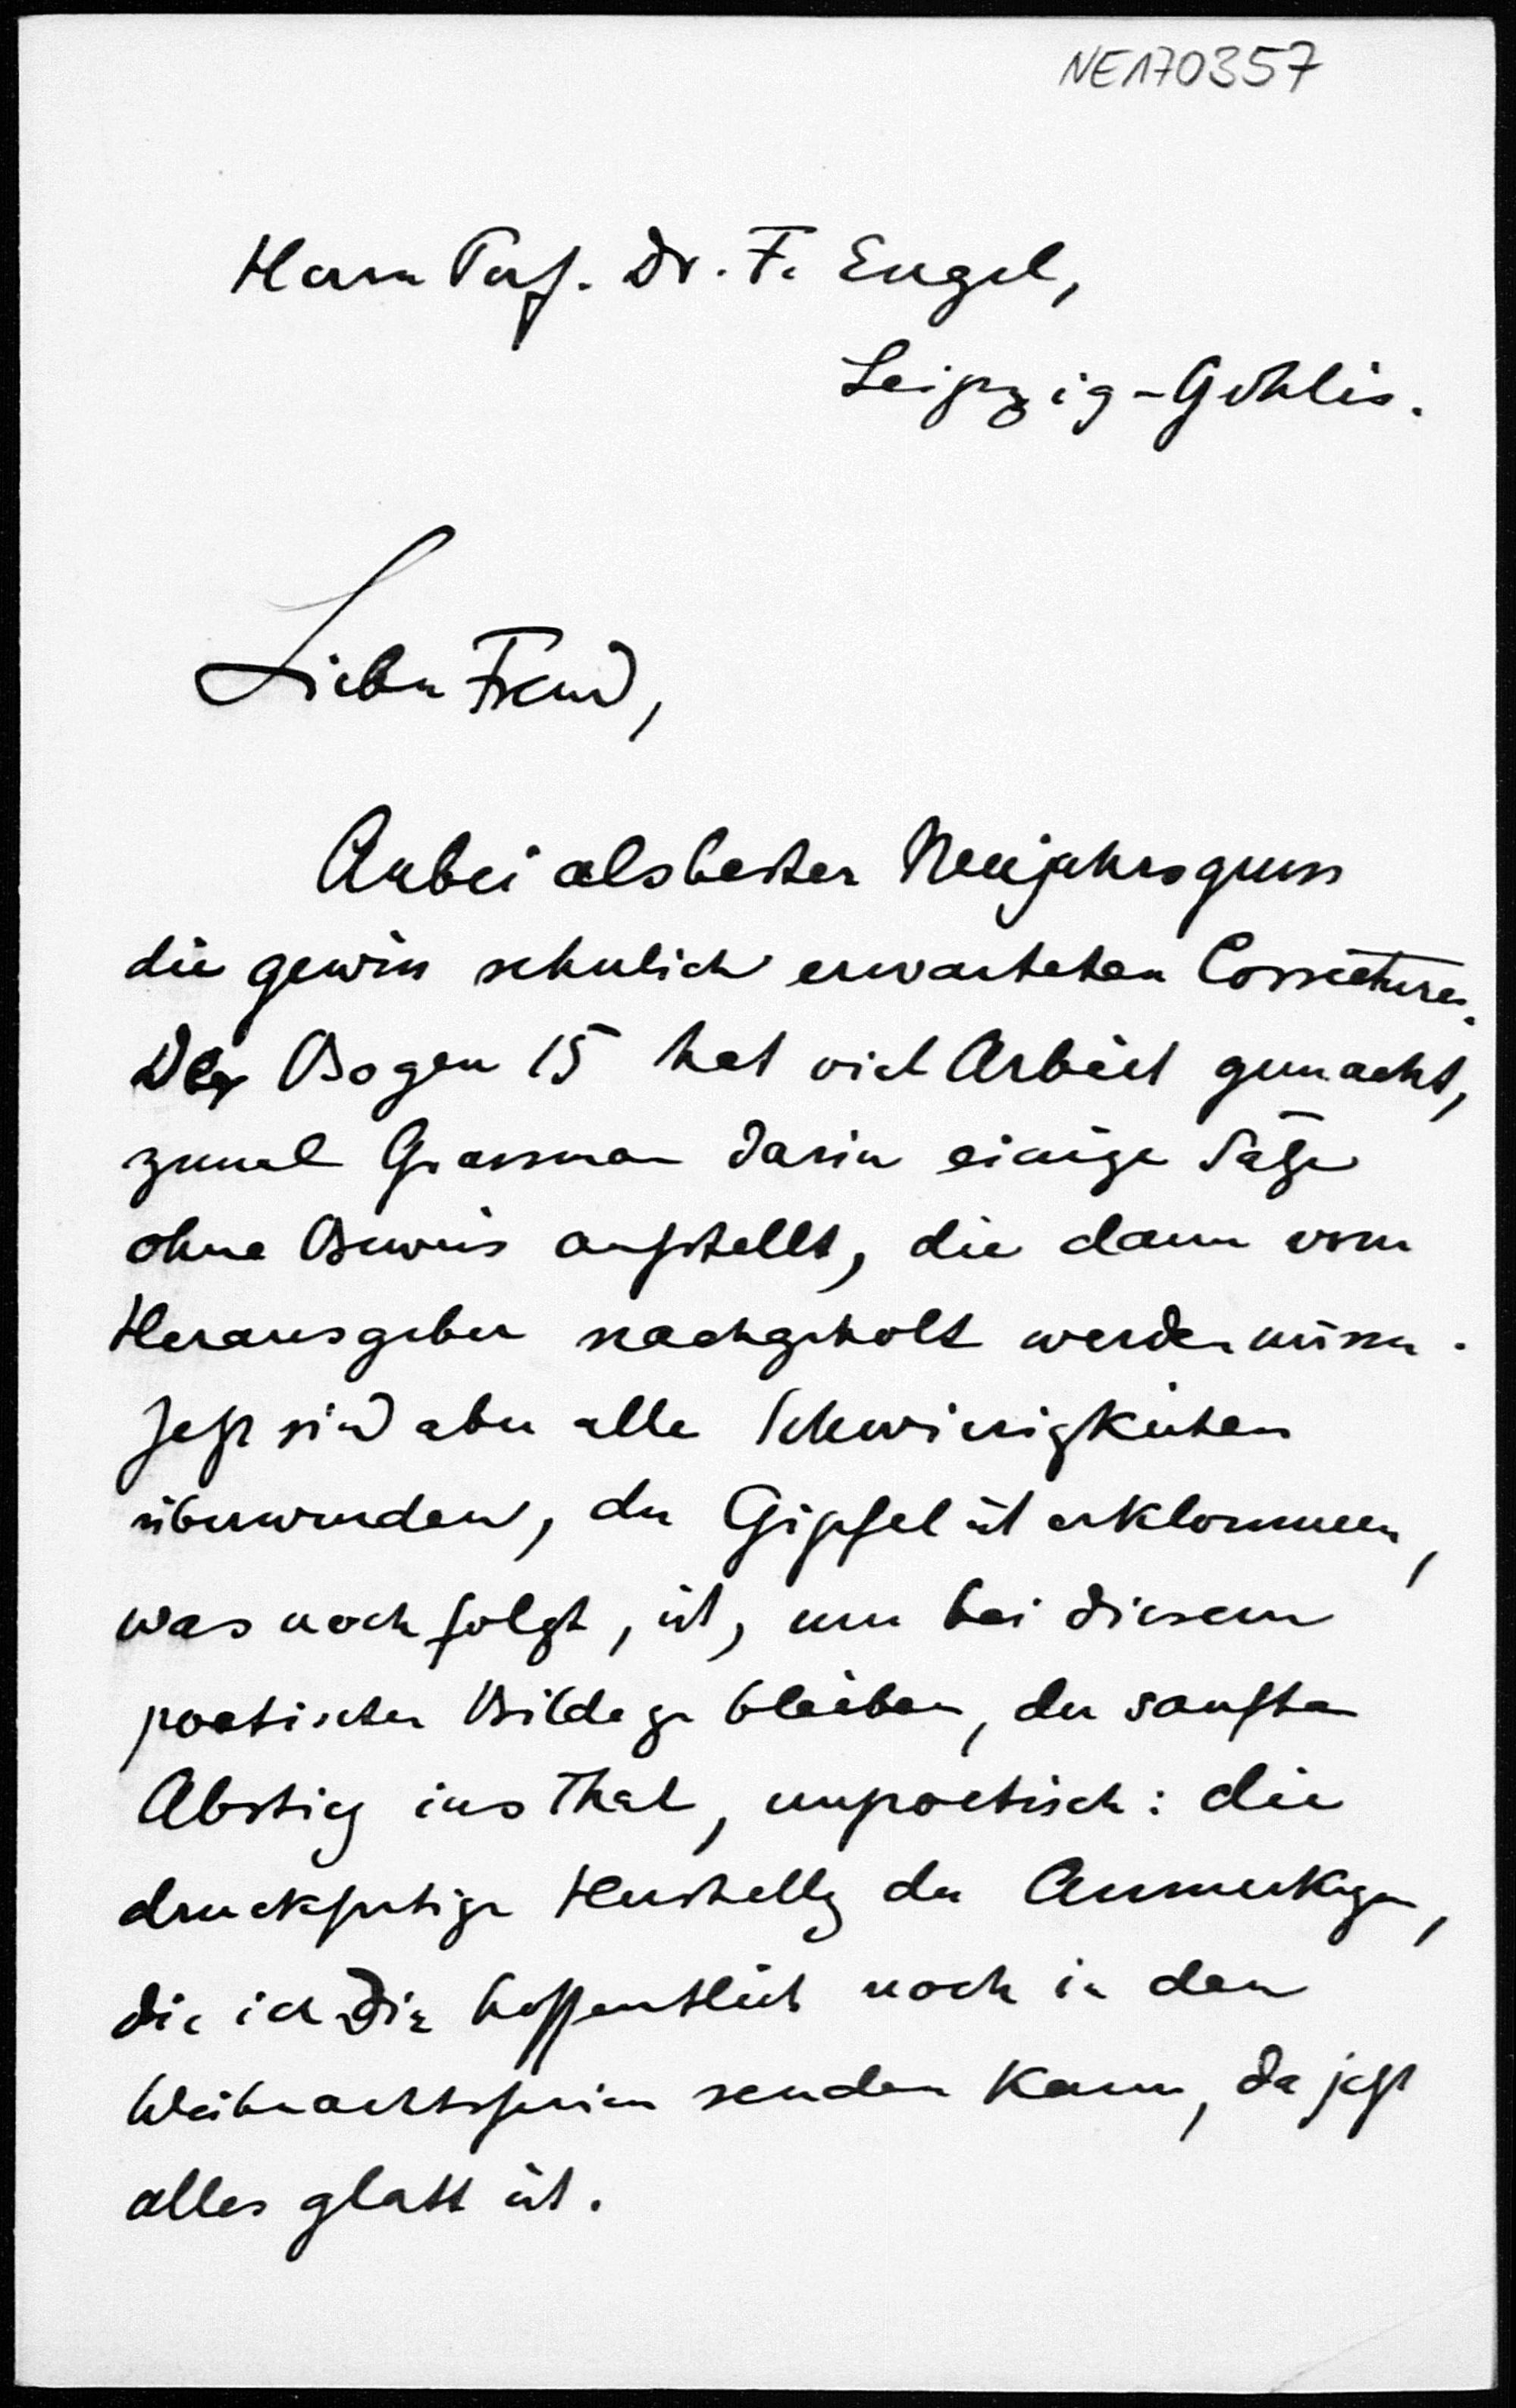 NE170357
Herrn Prof. Dr. F. Engel,
Leipzig-Gohlis.
Lieber Freund,
Anbei als bester Neujahrsgruss
die gewiss sehnlich erwarteten Correcturen.
Der Bogen 15 hat viel Arbeit gemacht,
zumal Grassmann darin einige Sätze
ohne Beweis aufstellt, die dann vom
Herausgeber nachgeholt werden müssen.
Jetzt sind aber alle Schwierigkeiten
überwunden, der Gipfel ist erklommen,
was noch folgt, ist, um bei diesem
poetischen Bilde zu bleiben, der sanfte
Abstieg ins Thal, unpoetisch: die
druckfertige Herstellung der Anmerkungen,
die ich Dir hoffentlich noch in den
Weihnachtsferien senden kann, da jetzt
alles glatt ist.